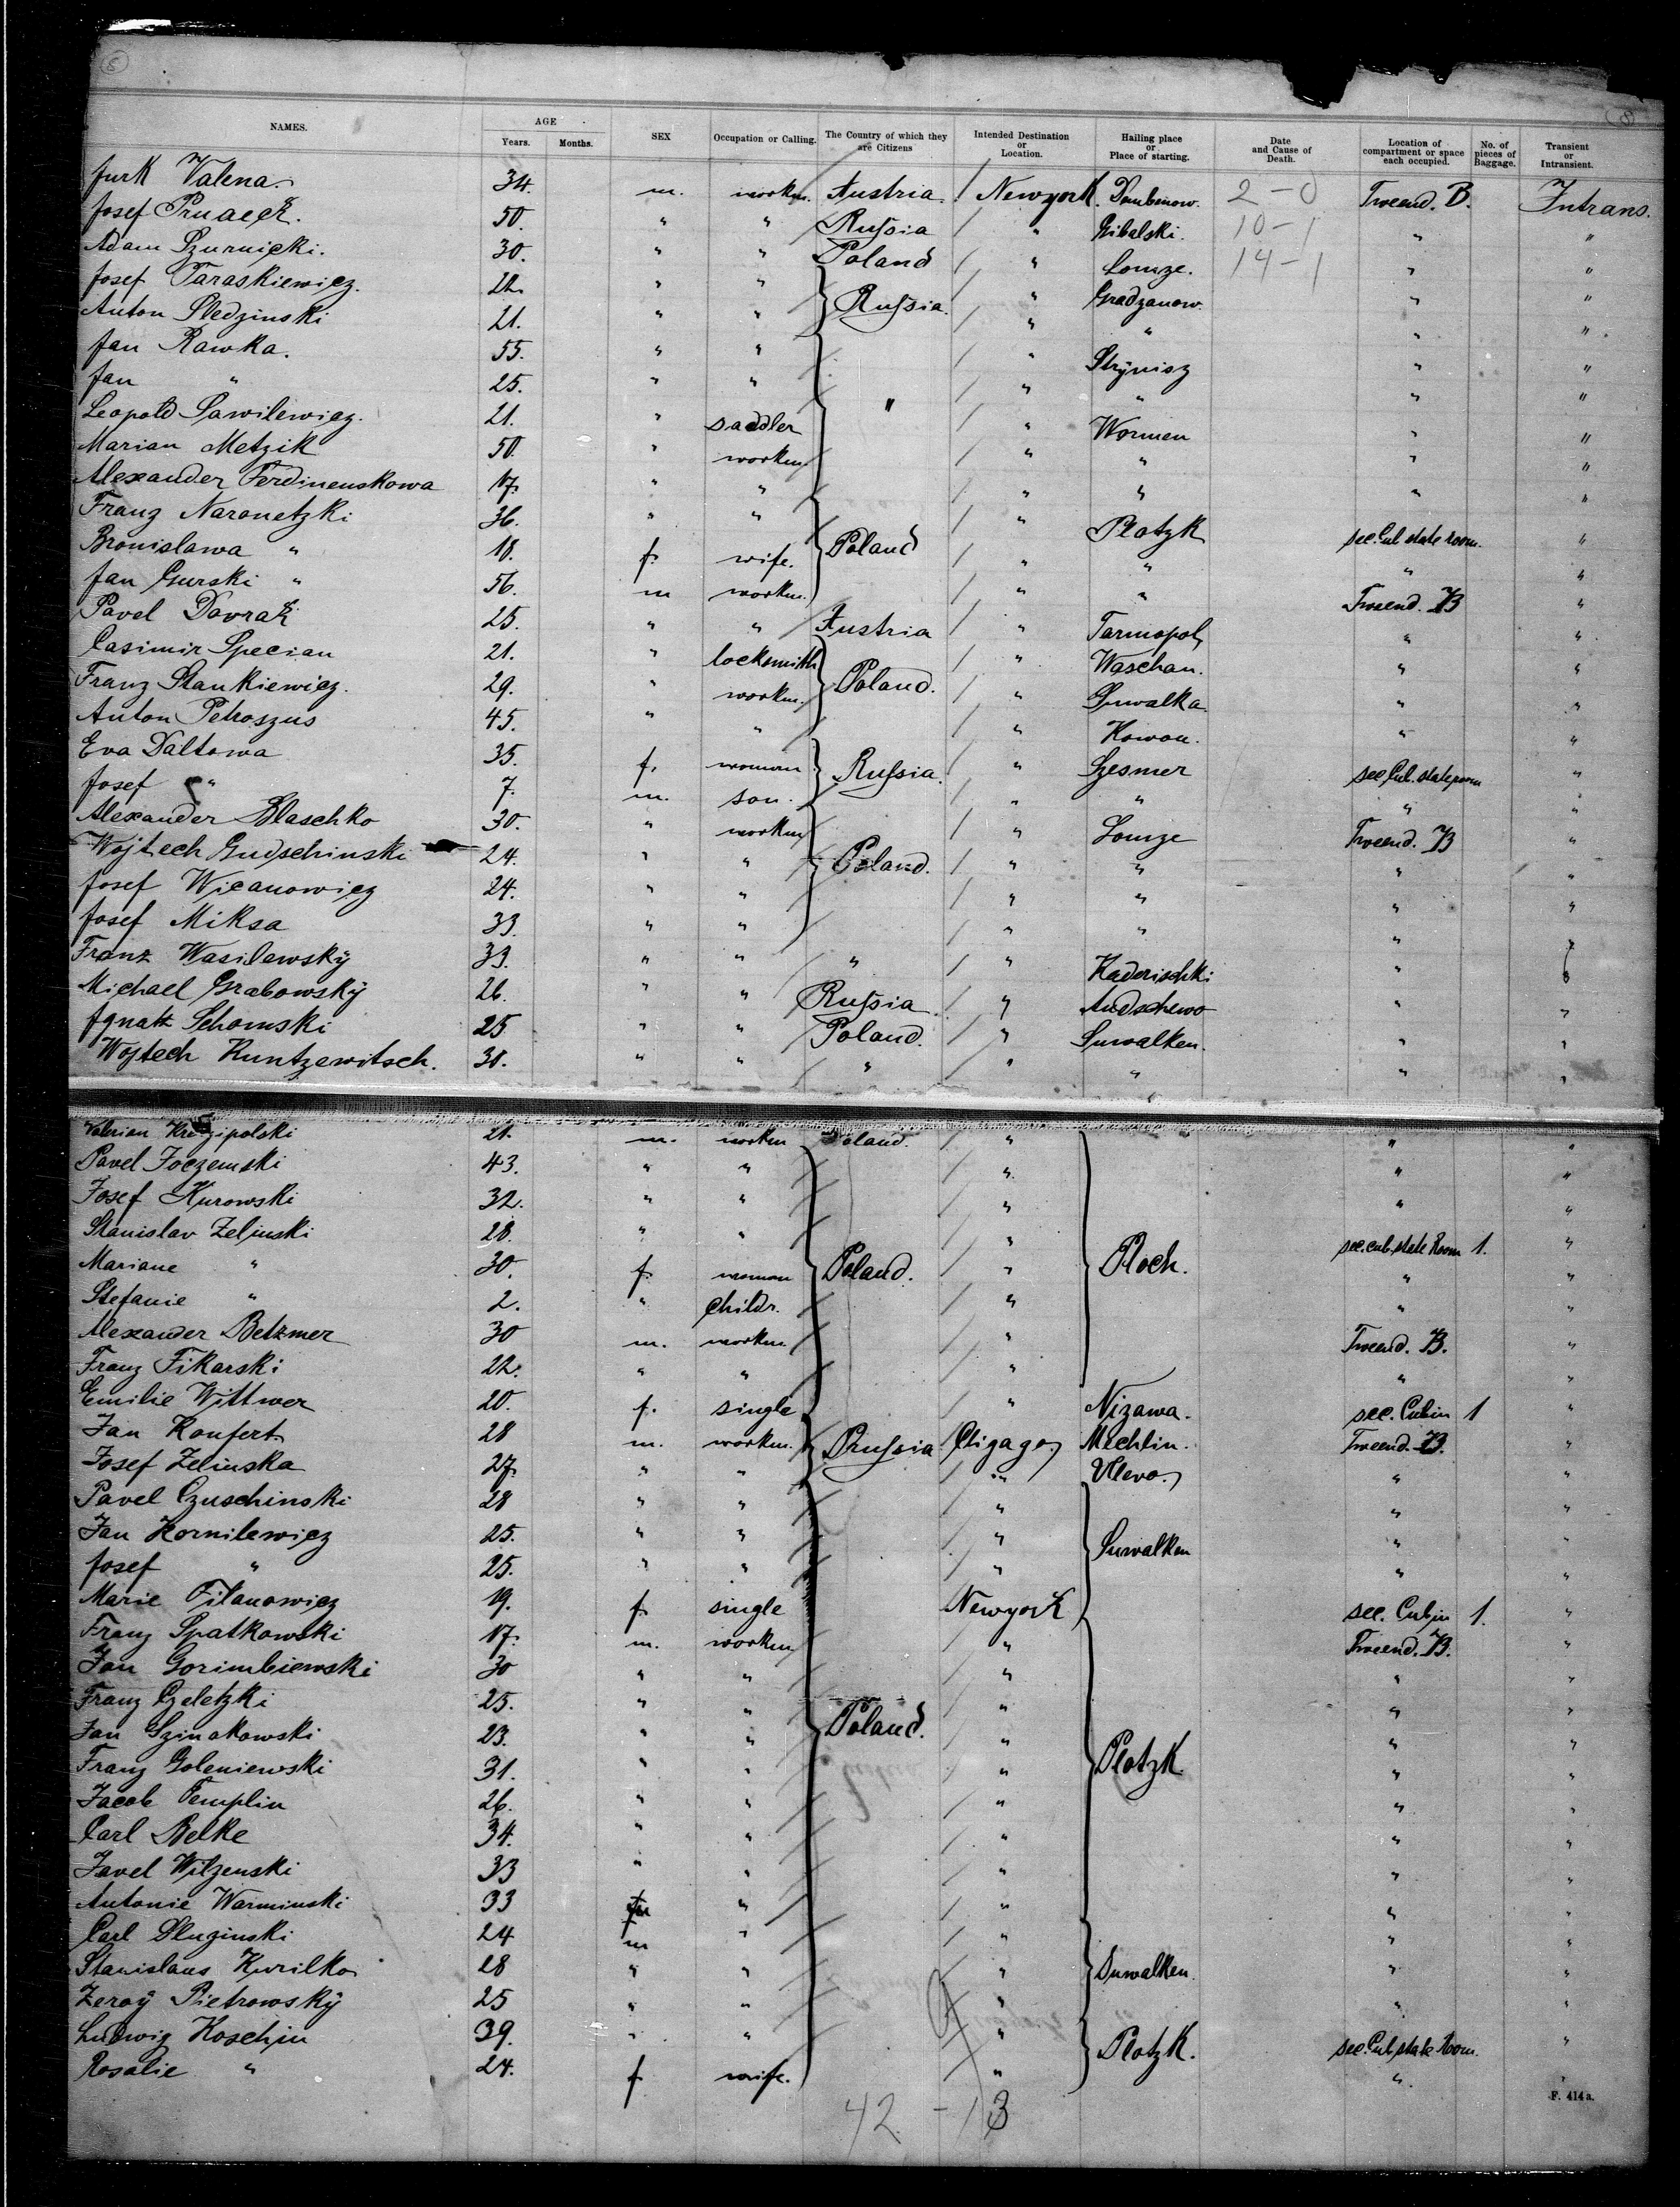 8
8
NAMES. AGE Years. Months. SEX Occupation or Calling. The Country of which they are Citizens Intended Destination or Location. Hailing place or Place of starting. Date and Cause of Death. Location of compartment or space each occupied. No. of pieces of Baggage. Transient or Intransient.
Jurk Valena. 34. m. workm. Austria. Newyork. Dombenow. 2-0 Tweend. B. Intrans.
Josef 50. " " Russia " Gibalski. 10-1 " "
Adam 30. " " Poland " Lomze. 14-1 " "
Josef Taraskiewicz. 22. " " Russia. " Gradzanow. " "
Anton Sledzinski 21. " " " " " "
Jan Rawka. 55. " " " " Strynisz " "
Jan " 25. " " " " " "
Leopold Pawilewicz. 21. " saddler " Wormen " "
Marian Metzik 50. " workm. " " " "
Alexander Ferdinenskowa 17. " " " " " "
Franz Naronetzki 36. " " Poland " Plotzk sec. Cub state room. "
Bronislawa " 18. f. wife. " " " "
Jan Gurski " 56. m workm. " " Tweend. B "
Pavel Dovrak 25. " " Austria " Tarmopol, " "
Casimir Specian 21. " locksmith Poland. " Waschan. " "
Franz Stankiewicz. 29. " workm. " Suwalka " "
Anton Petroszus 45. " " " Kowon. " "
Eva Daltowa 35. f. woman Russia. " Szesmer sec. Cub. stateroom "
Josef " 7. m. son. " " " "
Alexander Blaschko 30. " workm Poland. " Lomze Tweend. B "
Wojtech Gudschinski 24. " " " " " "
Josef Wicanowicz 24. " " " " " "
Josef Miksa 33. " " " " " "
Franz Wasilawsky 33. " " " " Kaderischki " "
Michael Grabowsky 26. " " Russia " Audschewo " "
Ignatz Schomski 25 " " Poland. " Suwalken. " "
Wojtech Kuntzewitsch. 30. " " " " " " "
Valerian 21. m. workm Poland. " " "
Pavel Joczemski 43. " " Poland. " Plock. " "
Josef Kurowski 32. " " " " "
Stanislav Zelinski 28. " " " sec. cub. state Room 1. "
Mariane " 30. f. woman " " "
Stefanie " 2. " childr. " " "
Alexander Betzmer 30 m. workm. " Tweend. B. "
Franz Fikarski 22. " " " " "
Emilie Wittwer 20. f. single " Nizawa. sec. Cubin 1 "
Jan Konfert 28 m. workm. Prussia Chigago, Mechlin. Tweend. B. "
Josef Zelinska 27. " " " Vlevo, " "
Pavel Czuschinski 28 " " " Suwalken " "
Jan Kornilewicz 25. " " " " "
Josef " 25. " " " " "
Marie Filanowicz 19. f. single Newyork sec. Cubin 1. "
Franz Spatkowski 17. m. workm Poland. " Plotzk. Tweend. B. "
Jan Gorimbiewski 30 " " " " "
Franz Czeletzki 25. " " " " "
Jan Szinakowski 23. " " " " "
Franz Goleniewski 31. " " " " "
Jacob Templin 26. " " " " "
Carl Belke 34. " " " " "
Pavel Witzenski 33 " " " " "
Antonie Warminski 33 f " " " "
Carl Sluginski 24 m " " Suwalken. " "
Stanislaus Kurilko 28 " " " " "
Zeroy Pietrowsky 25 " " " " "
Ludwig Koschin 39. " " " Plotzk. sec. Cub state Room. "
Rosalie " 24. f. wife. " " "
42 - 13
F. 414 a.